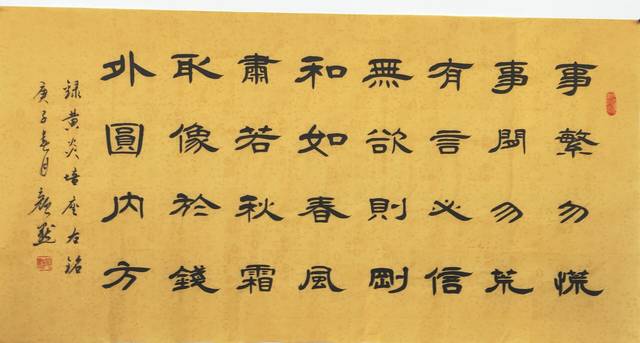 事繁勿慌
事閒勿荒
有言必信
無欲則剛
和如春風
肅若秋霜
取像於錢
外圓内方
錄黃炎培座右銘
庚子春月